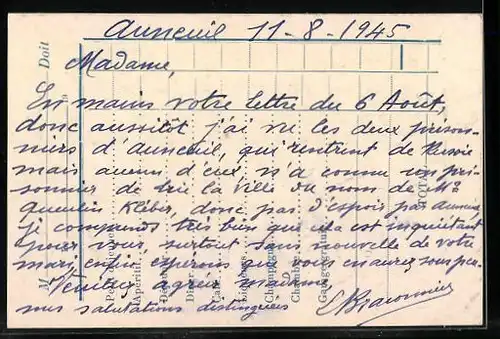 Auneuil 11-8-1945
Madame,
En mains votre lettre du 6 Août,
donc aussitôt j'ai vu les deux prison-
niers d'Auneuil, qui rentrent de Russie
mais aucun d'eux, n'a connu un pri-
sonnier de la ville du nom de Mr
Quentin Kléber, donc pas d'espoir par Auneuil
je comprends très bien que cela est inquiétant
pour vous, surtout sans nouvelle de votre
mari, enfin espérons que vous en aurez sous peu
Veuillez agréer madame
mes salutations distinguées
Doit
M
Apéritif
Dîner
Café
Champagne
Garage